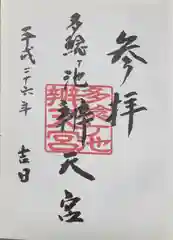 参拝
多鯰ヶ池
辨天宮
平成二十六年
吉日
多鯰池
辨天宮